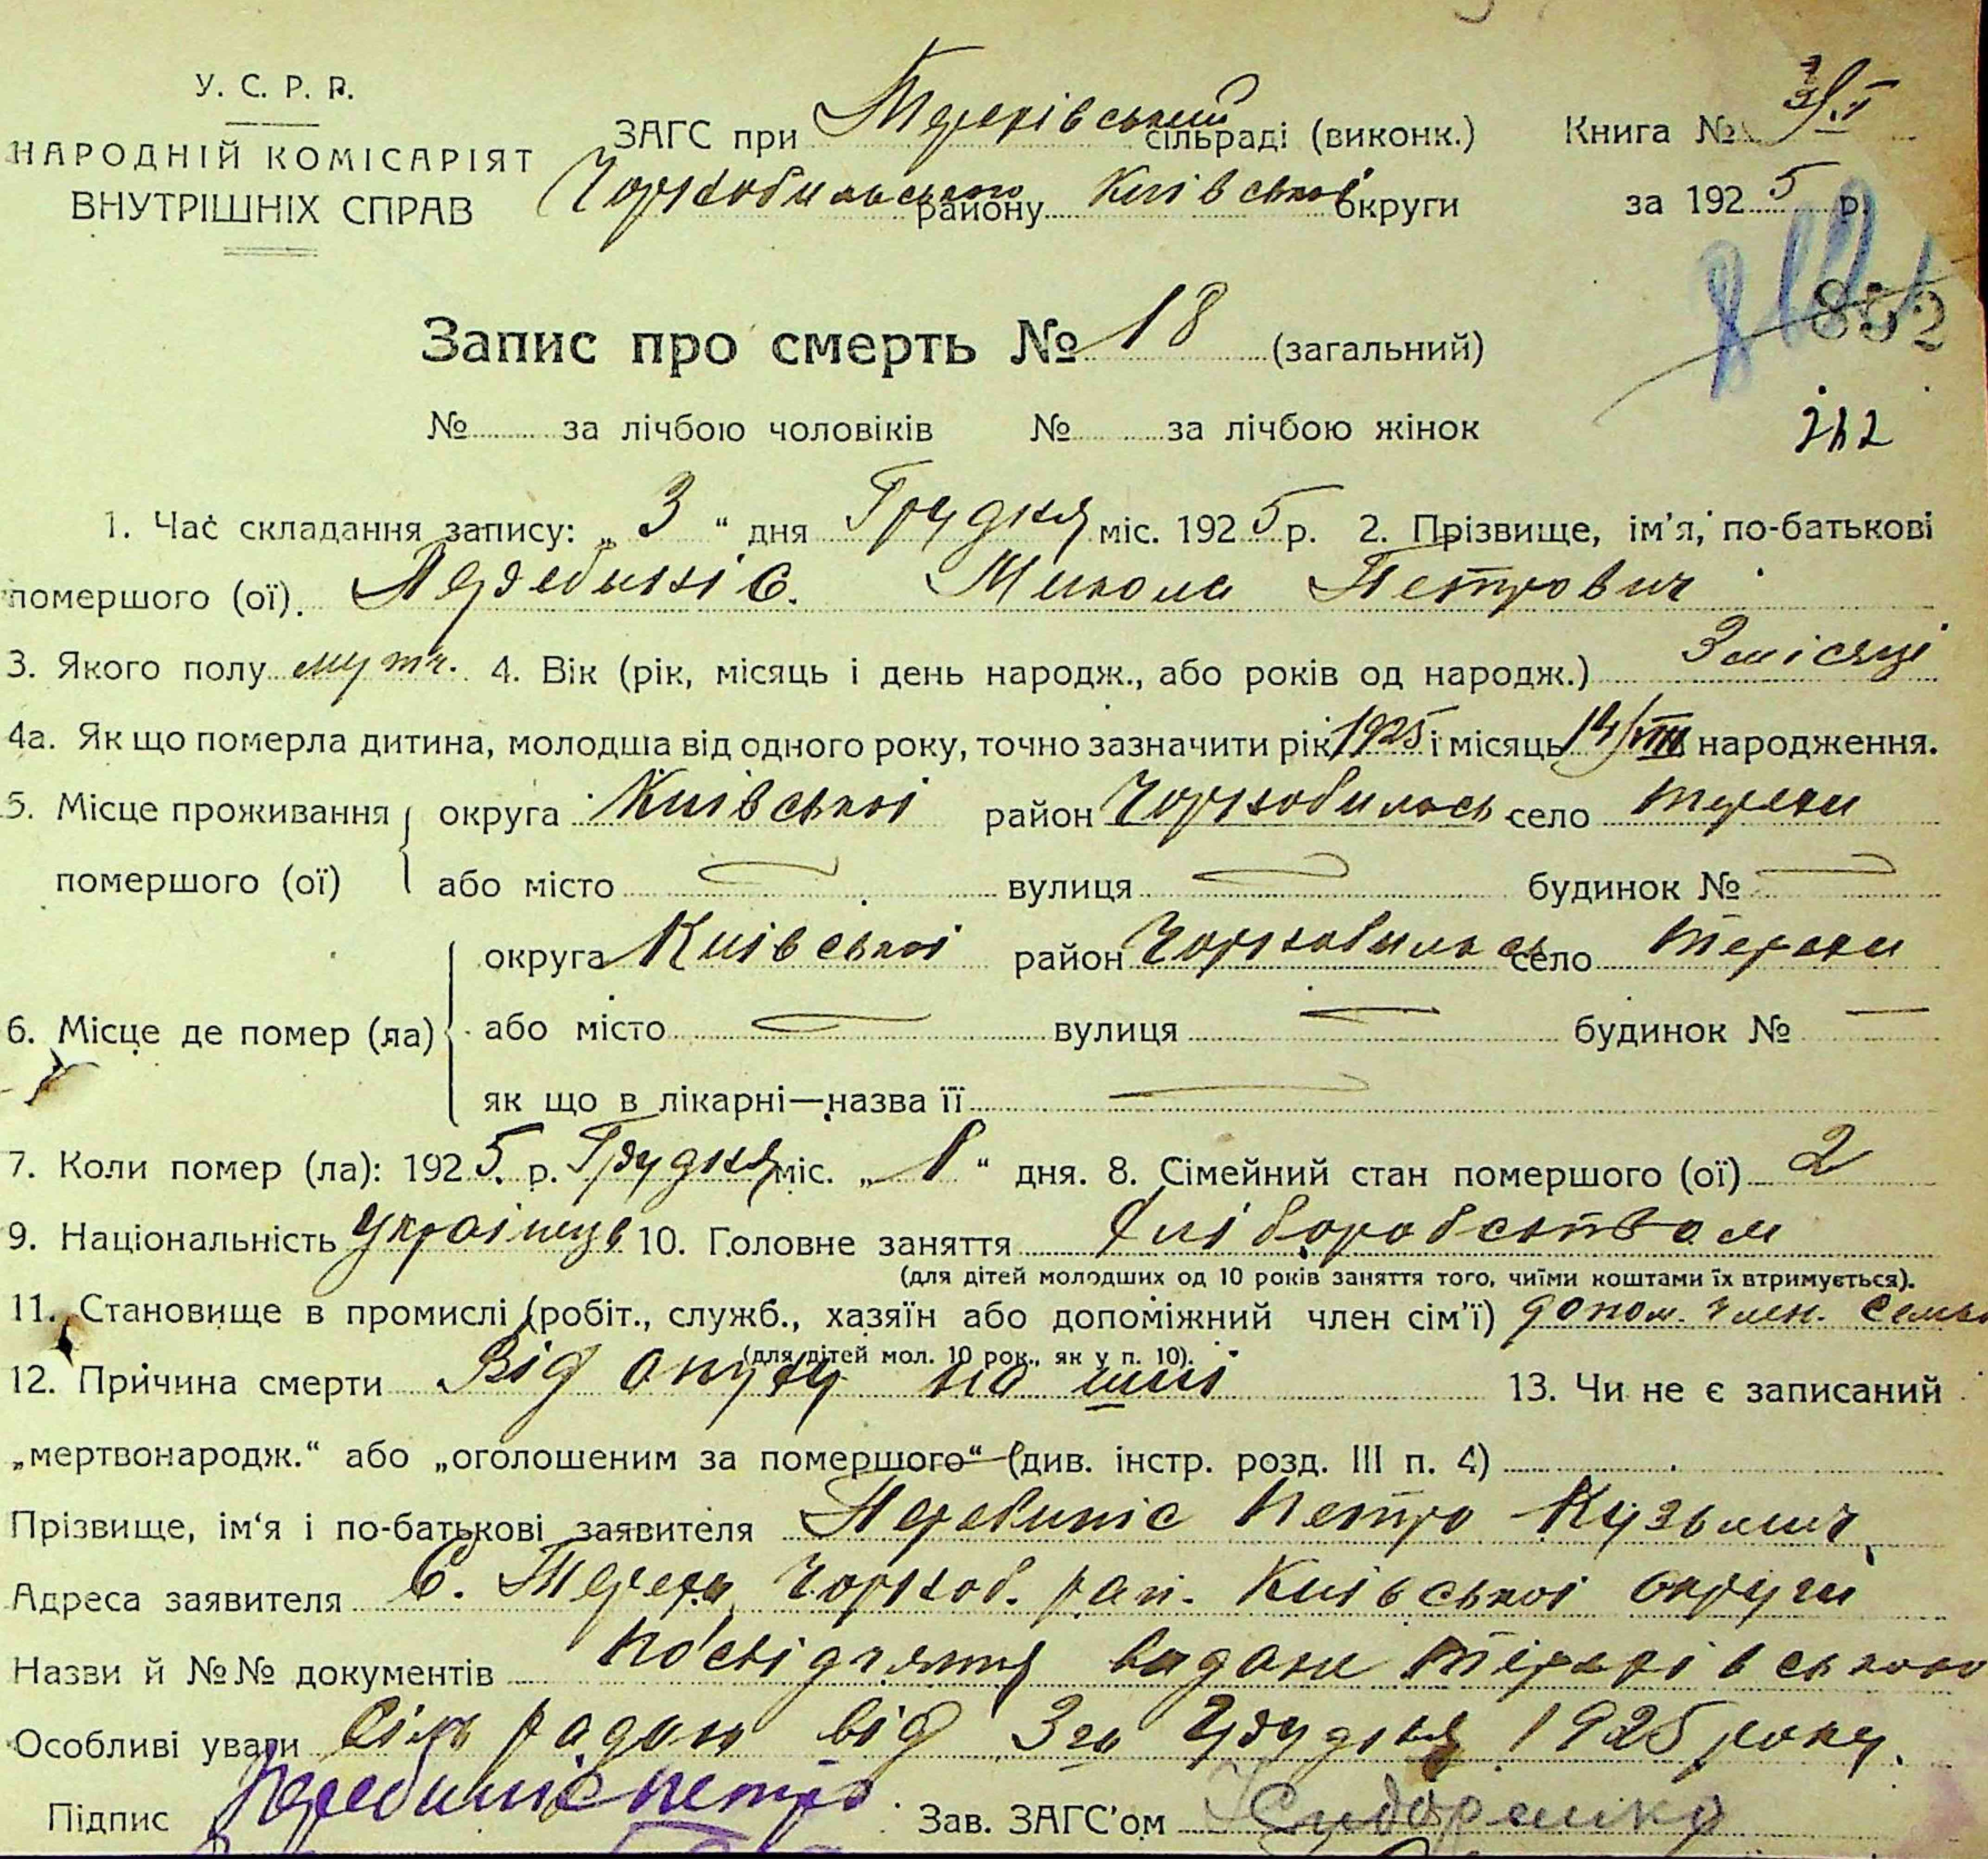 У. С. Р. Р.
НАРОДНІЙ КОМІСАРІЯТ
ВНУТРІШНІХ СПРАВ
ЗАГС при Терехівський сільраді (виконк.)
Чорнобильського району Київської округи
Книга №
за 1925 р.
852
Запис про смерть № 18 (загальний)
№ за лічбою чоловіків № за лічбою жінок
1. Час складання запису: „3“ дня Грудня міс. 1925 р. 2. Прізвище, ім'я, по-батькові
помершого (ої). Микола Петрович
3. Якого полу 4. Вік (рік, місяць і день народж., або років од народж.) 3 місяці
4а. Як що померла дитина, молодша від одного року, точно зазначити рік 1925 і місяць 14/VIII народження.
5. Місце проживання помершого (ої) округа Київської район Чорнобильськ село Терехи
або місто вулиця будинок №
6. Місце де помер (ла) округа Київської район Чорнобильськ село Терехи
або місто вулиця будинок №
як що в лікарні—назва її
7. Коли помер (ла): 1925 р. Грудня міс. „1“ дня. 8. Сімейний стан помершого (ої) 2
9. Національність Українець 10. Головне заняття Хліборобством
(для дітей молодших од 10 років заняття того, чиїми коштами їх втримується).
11. Становище в промислі (робіт., служб., хазяїн або допоміжний член сім'ї) допом. член.
(для дітей мол. 10 рок., як у п. 10).
12. Причина смерти Від опуху на шиї 13. Чи не є записаний
„мертвонародж.“ або „оголошеним за помершого“ (див. інстр. розд. III п. 4)
Прізвище, ім‘я і по-батькові заявителя Петро Кузьмич
Адреса заявителя С. Терехи Чорноб. рай. Київської округи
Назви й №№ документів видане Терехівською
Особливі уваги Сіль радою від 3го Грудня 1925 року.
Підпис Петро Зав. ЗАГС'ом Сидоренко